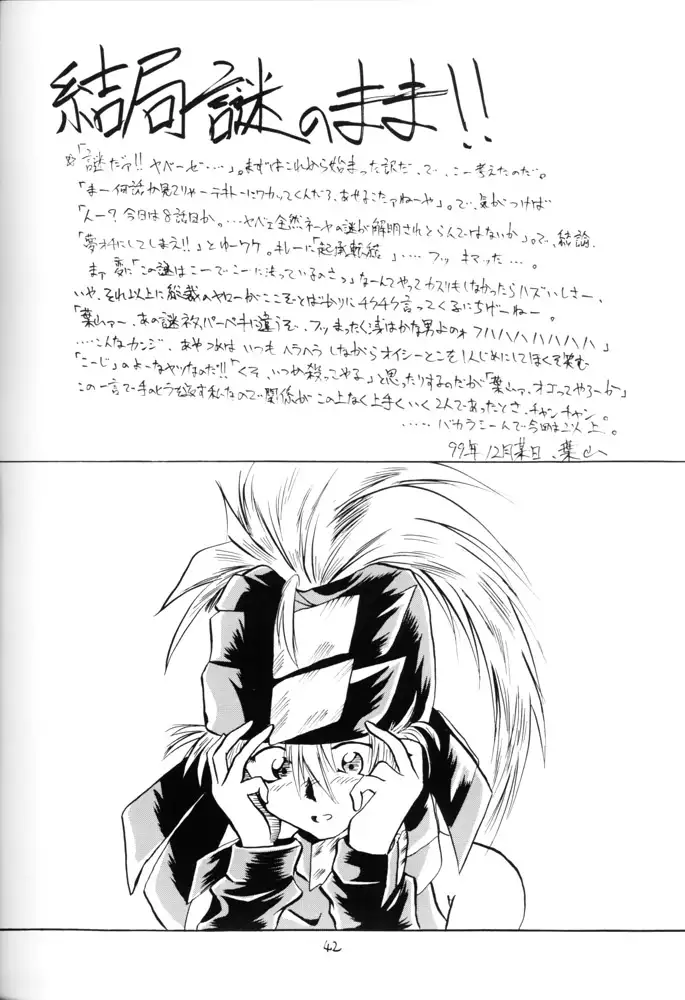 結局謎のまま!!
☆「謎だァ!! ヤベーぜ‥‥」。まずはこれから始まった訳だ、で、こー考えたのだ。
「まー何話か見てりゃーテキトーにワカってくんだろ、あせるこたァねーや」。で、気がつけば
「んー?今日は8話目か。‥‥ヤベェ全然ネーヤの謎が解明されとらんではないか」。で、結論、
「夢オチにしてしまえ!!」とゆーワケ。キレーに「起承転結」‥‥フッ キマッた‥‥。
まァ変に「この謎はこーでこーに
なっているのさっ」なーんてやってカスリもしなかったらハズいしさー、
いや、それ以上に総裁のヤローがここぞとばかりにチクチク言ってくるにちげーねー。
「葉山ァー、あの謎ネタ、パーペキに違うぞ、フッまったく浅はかな男よのォ フハハハハハハハ」
‥‥こんなカンジ。あやつめは いつも ヘラヘラ しながらオイシーとこを1人じめにしてほくそ笑む
「こーじ」のよーなヤツなのだ!!「くそ、いつの日か殺ってやる」と思ったりするのだが「葉山ァ、オゴってやろーか」
この一言で手のヒラを返す私なので関係が この上なく上手くいく2人であったとさ、チャンチャン。
‥‥‥バカラミーんで今回は以上。
99年12月某日、葉山
42